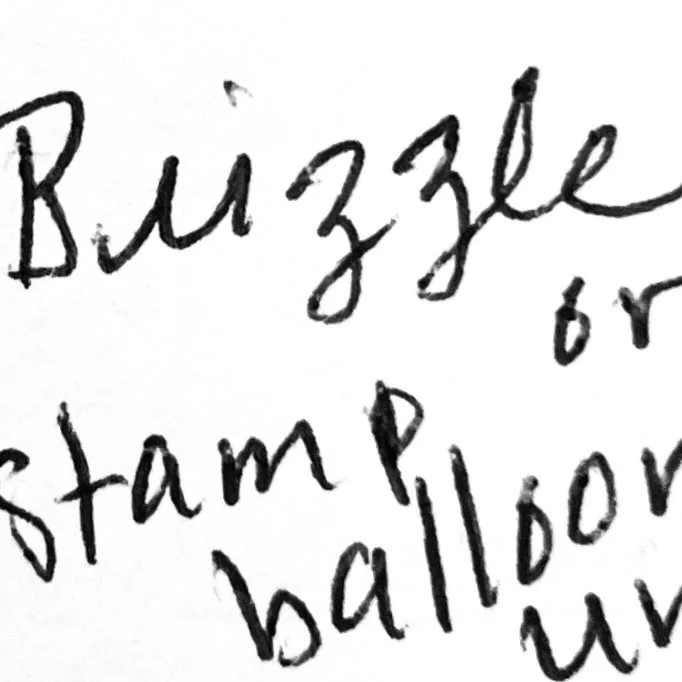 Brizzle
or
stamp
balloon